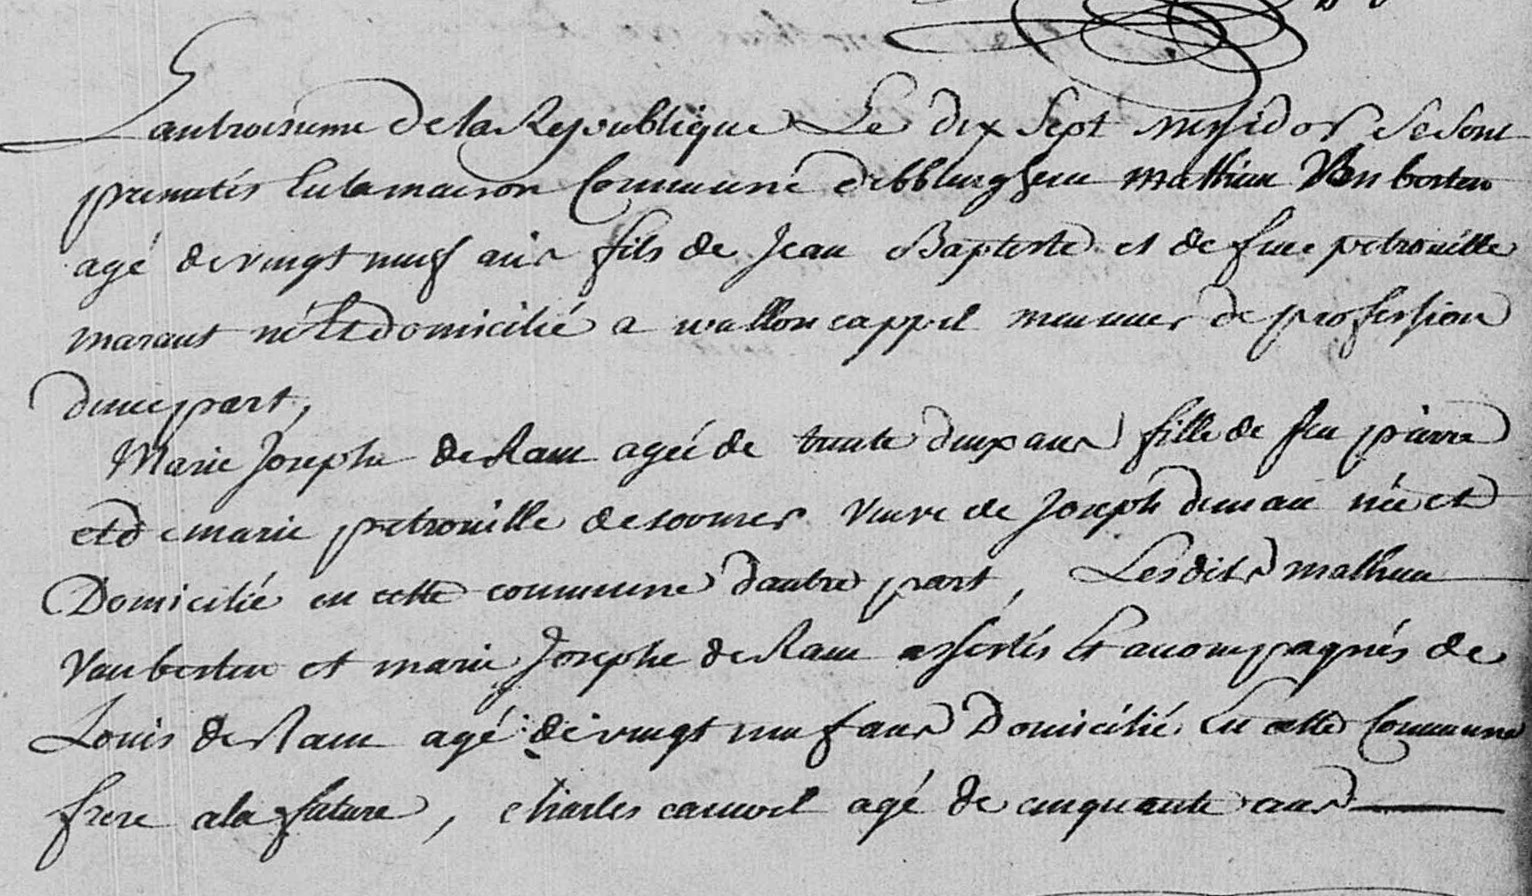 Lan troisieme de la Republique Le dix Sept messidor Se sont
presentés En la maison Commune debblinghem mathieu Vanbesten
agé de vingt neuf ans fils de Jean Baptiste et de feue petronille
marant né Et domicilié a wallon cappel meunier de profession
dune part,
Marie Josephe de Ram agée de trente deux ans fille de feu pierre
et de marie petronille desomer veuve de Joseph née et
Domicilié en cette commune dautre part, Lesdits mathieu
Vanbesten et marie Josephe de Ram assistés Et acompagnés de
Louis de Ram agé de vingt neuf ans Domicilié En cette Commune
frere a la future, charles agé de cinquante ans